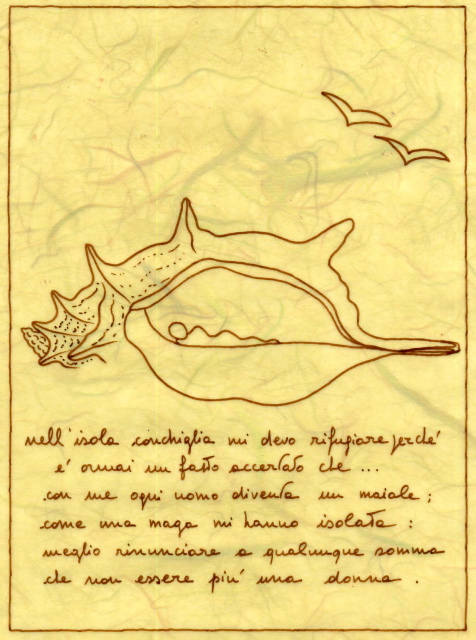 nell'isola conchiglia mi devo rifugiare perché
e' ormai un fatto accertato che ...
con me ogni uomo diventa un maiale ;
come una maga mi hanno isolata :
meglio rinunciare a qualunque somma
che non essere piu' una donna .